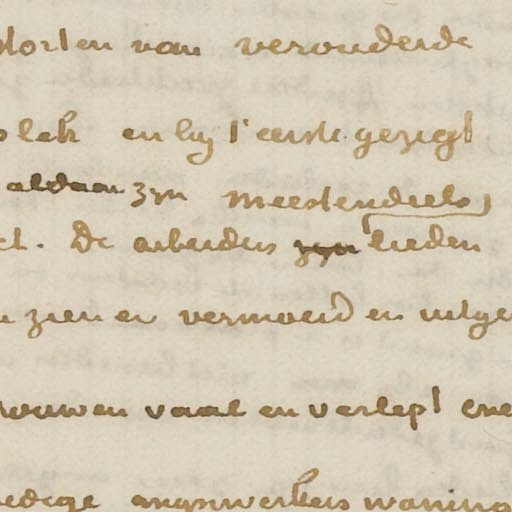 storten van verouderde
plek en by 't eerste gezigt
aldaar zyn meestendeels
De arbeiders zyn lieden
zien er vermoeid en uitge
rouwen vaal en verlept ene
mynwerkers woning